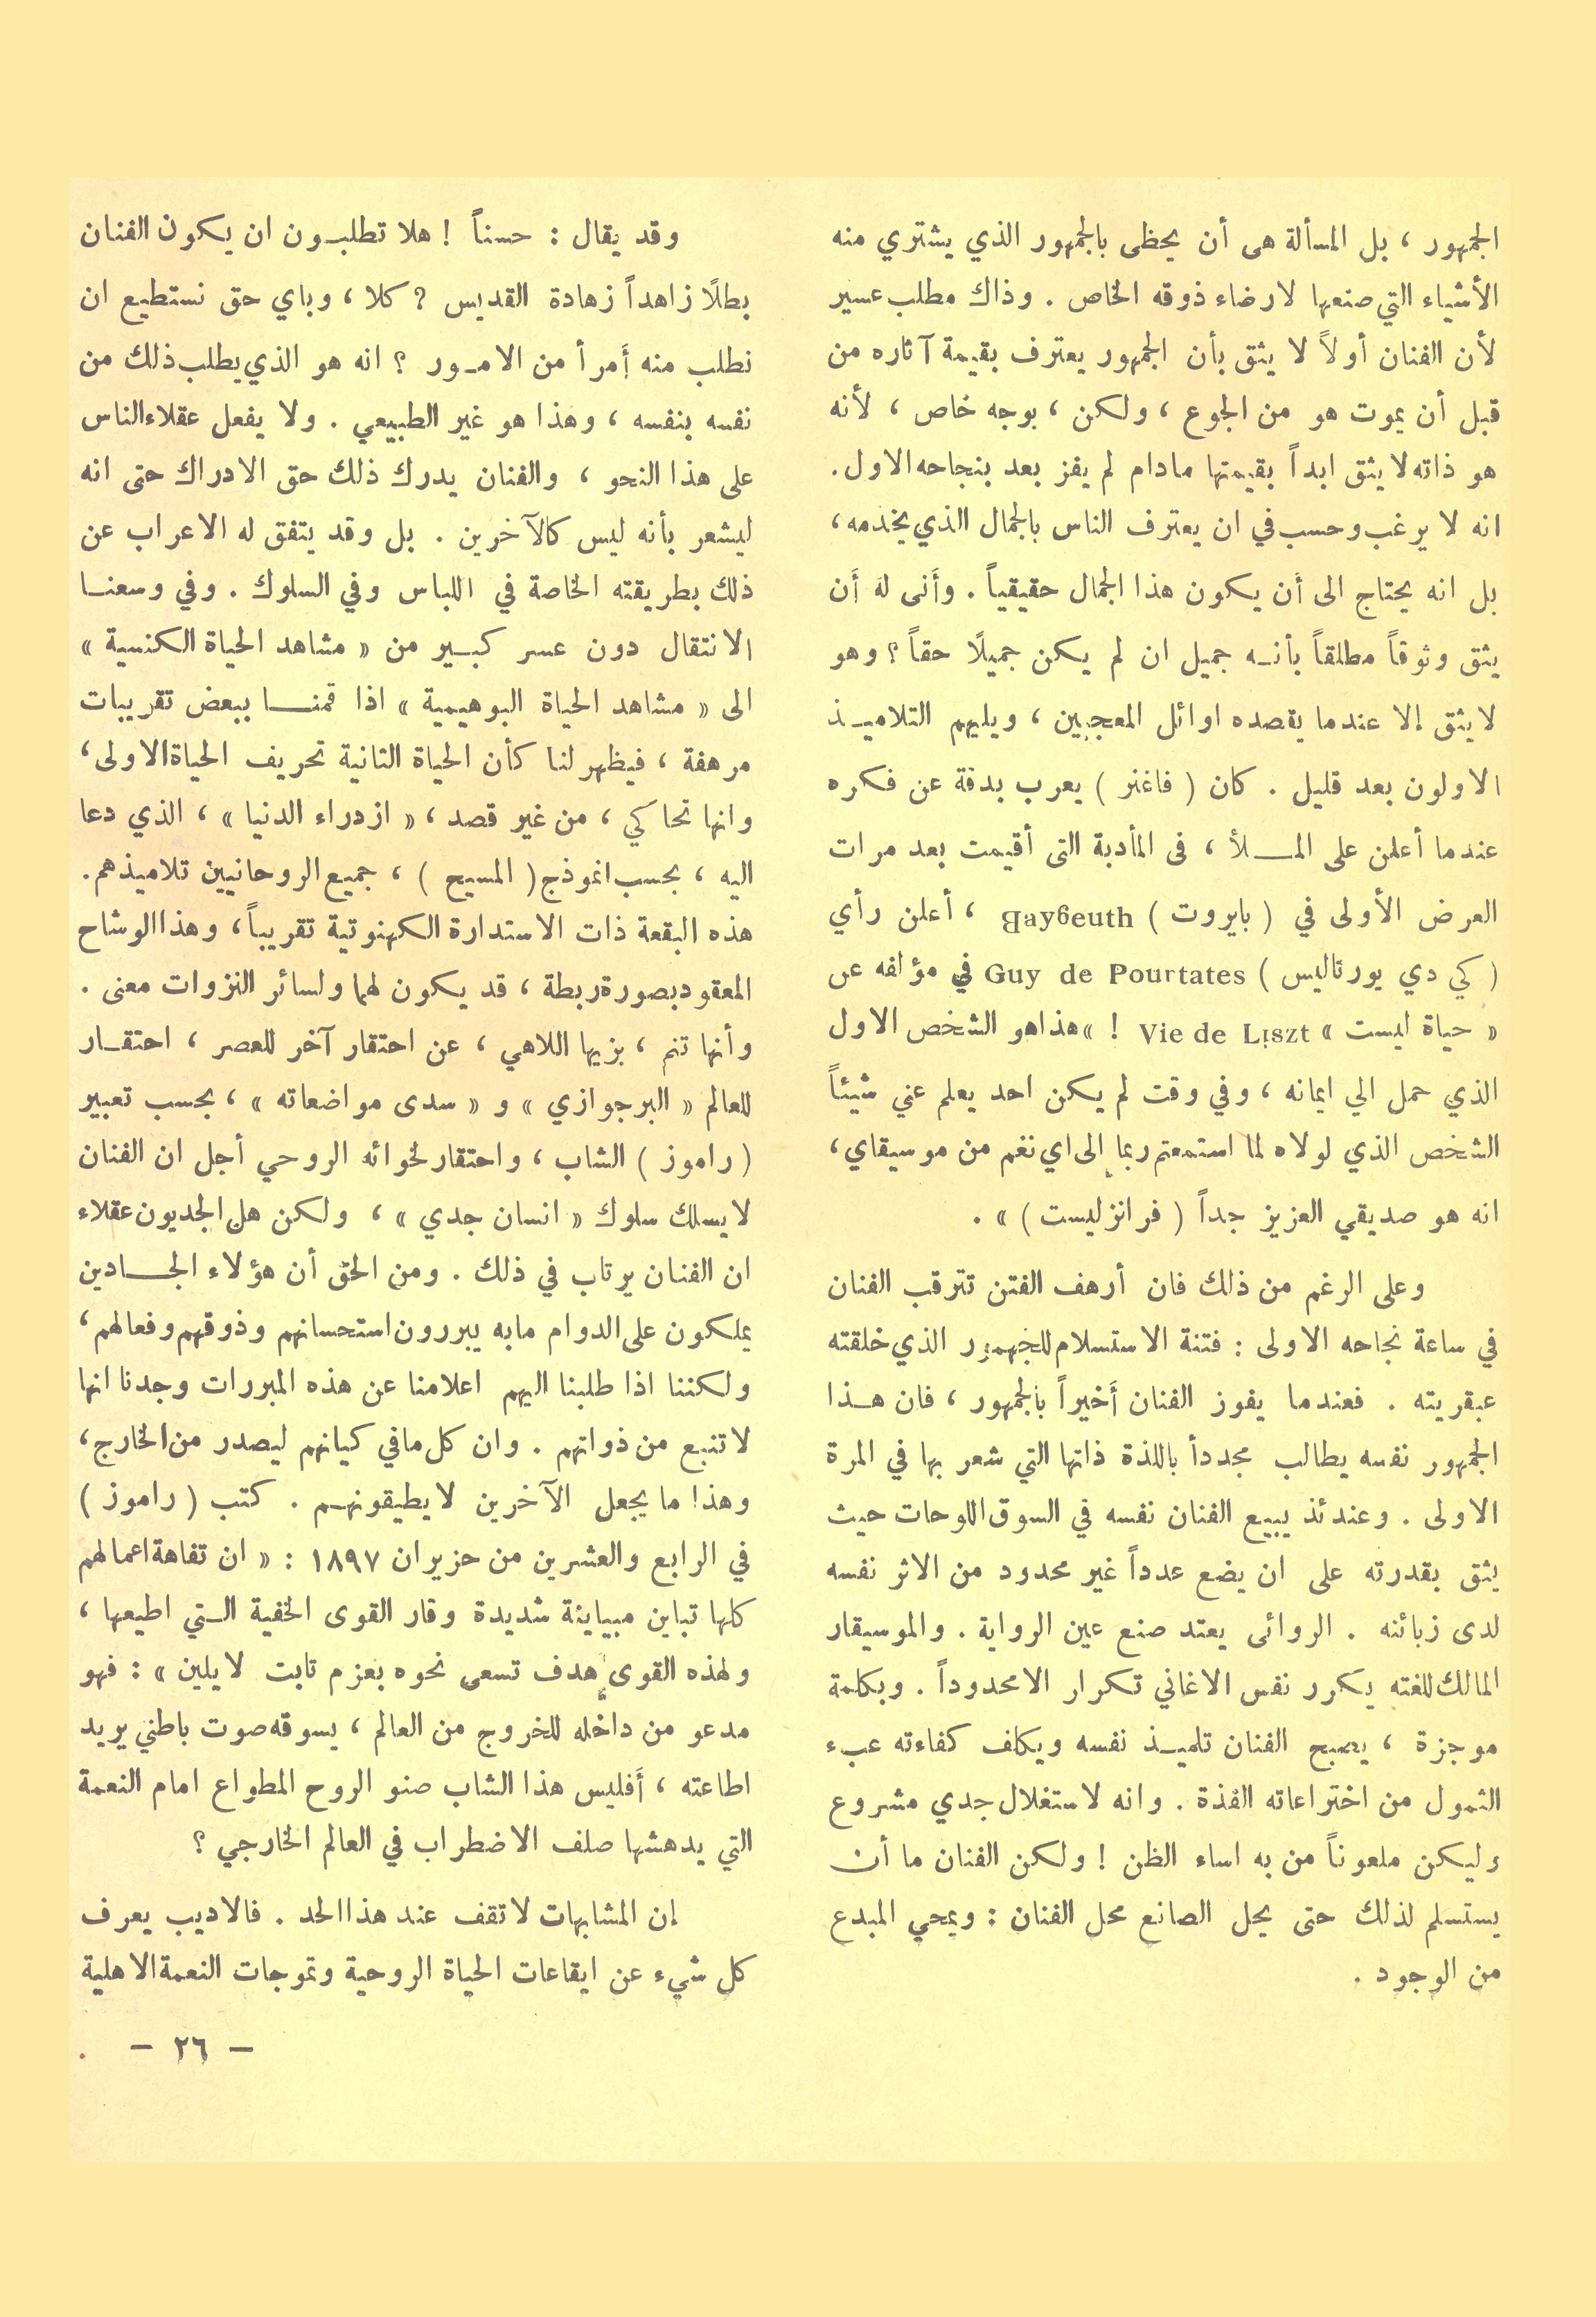 الجمهور ، بل المسألة هى أن يحظى بالجمهور الذي يشتري منه
الأشياء التي صنعها لارضاء ذوقه الخاص . وذاك مطلب عسير
لأن الفنان أولاً لا يثق بأن الجمهور يعترف بقيمة آثاره من
قبل أن يموت هو من الجوع ، ولكن ، بوجه خاص ، لأنه
هو ذاته لا يثق ابداً بقيمتها مادام لم يفز بعد بنجاحه الاول .
انه لا يرغب وحسب في ان يعترف الناس بالجمال الذي يخدمه ،
بل انه يحتاج الى أن يكون هذا الجمال حقيقياً . وأنى له أن
يثق وثوقاً مطلقاً بأنه جميل ان لم يكن جميلاً حقاً ؟ وهو
لا يثق إلا عندما يقصده اوائل المعجبين ، ويليهم التلاميذ
الاولون بعد قليل . كان ( فاغنر ) يعرب بدقة عن فكره
عندما أعلن على الملأ ، فى المأدبة التى أقيمت بعد مرات
العرض الأولى في ( بايروت ) Bayreuth ، أعلن رأي
( كي دي بورتاليس ) Guy de Pourtates في مؤلفه عن
« حياة ليست » Vie de Liszt ! » هذا هو الشخص الاول
الذي حمل الي ايمانه ، وفي وقت لم يكن احد يعلم عني شيئاً
الشخص الذي لولاه لما استمعتم ربما الى اي نغم من موسيقاي ،
انه هو صديقي العزيز جداً ( فرانز ليست ) » .
وعلى الرغم من ذلك فان أرهف الفتن تترقب الفنان
في ساعة نجاحه الاولى : فتنة الاستسلام للجهمور الذي خلقته
عبقريته . فعندما يفوز الفنان أخيراً بالجمهور ، فان هذا
الجمهور نفسه يطالب مجدداً باللذة ذاتها التي شعر بها في المرة
الاولى . وعندئذ يبيع الفنان نفسه في السوق اللوحات حيث
يثق بقدرته على ان يضع عدداً غير محدود من الاثر نفسه
لدى زبائنه . الروائى يعتد صنع عين الرواية . والموسيقار
المالك للغته يكرر نفس الاغاني تكرار الامحدوداً . وبكلمة
موجزة ، يصبح الفنان تلميذ نفسه ويكلف كفاءته عبء
الثمول من اختراعاته الفذة . وانه لاستغلال جدي مشروع
وليكن ملعوناً من به اساء الظن ! ولكن الفنان ما أن
يستسلم لذلك حتى يحل الصانع محل الفنان : ويمحي المبدع
من الوجود .
وقد يقال : حسناً ! هلا تطلبون ان يكون الفنان
بطلاً زاهداً زهادة القديس ؟ كلا ، وباي حق نستطيع ان
نطلب منه أمراً من الامور ؟ انه هو الذي يطلب ذلك من
نفسه بنفسه ، وهذا هو غير الطبيعي . ولا يفعل عقلاء الناس
على هذا النحو ، والفنان يدرك ذلك حق الادراك حتى انه
ليشعر بأنه ليس كالآخرين . بل وقد يتفق له الاعراب عن
ذلك بطريقته الخاصة في اللباس وفي السلوك . وفي وسعنا
الانتقال دون عسر كبير من « مشاهد الحياة الكنسية »
الى « مشاهد الحياة البوهيمية » اذا قمنا ببعض تقريبات
مرهفة ، فيظهر لنا كأن الحياة الثانية تحريف الحياة الاولى ،
وانها تحاكي ، من غير قصد ، « ازدراء الدنيا » ، الذي دعا
اليه ، بحسب انموذج ( المسيح ) ، جميع الروحانيين تلاميذهم .
هذه البقعة ذات الاستدارة الكهنوتية تقريباً ، وهذا الوشاح
المعقود بصورة ربطة ، قد يكون لهما ولسائر النزوات معنى .
وأنها تنم ، بزيها اللاهي ، عن احتقار آخر للعصر ، احتقار
للعالم « البرجوازي » و « سدى مواضعاته » ، بحسب تعبير
( راموز ) الشاب ، واحتقار لخوائه الروحي أجل ان الفنان
لا يسلك سلوك « انسان جدي » ، ولكن هل الجديون عقلاء
ان الفنان يرتاب في ذلك . ومن الحق أن هؤلاء الجادين
يملكون على الدوام مابه يبررون استحسانهم وذوقهم وفعالهم ،
ولكننا اذا طلبنا اليهم اعلامنا عن هذه المبررات وجدنا انها
لا تنبع من ذواتهم . وان كل مافي كيانهم ليصدر من الخارج ،
وهذا ما يجعل الآخرين لا يطيقونهم . كتب ( راموز )
في الرابع والعشرين من حزيران ١٨٩٧ : « ان تفاهة اعمالهم
كلها تباين مبياينة شديدة وقار القوى الخفية التي اطيعها ،
ولهذه القوى هدف تسعى نحوه بعزم ثابت لا يلين » : فهو
مدعو من داخله للخروج من العالم ، يسوقه صوت باطني يريد
اطاعته ، أفليس هذا الشاب صنو الروح المطواع امام النعمة
التي يدهشها صلف الاضطراب في العالم الخارجي ؟
إن المشابهات لا تقف عند هذا الحد . فالاديب يعرف
كل شيء عن ايقاعات الحياة الروحية وتموجات النعمة الاهلية
– ٢٦ –